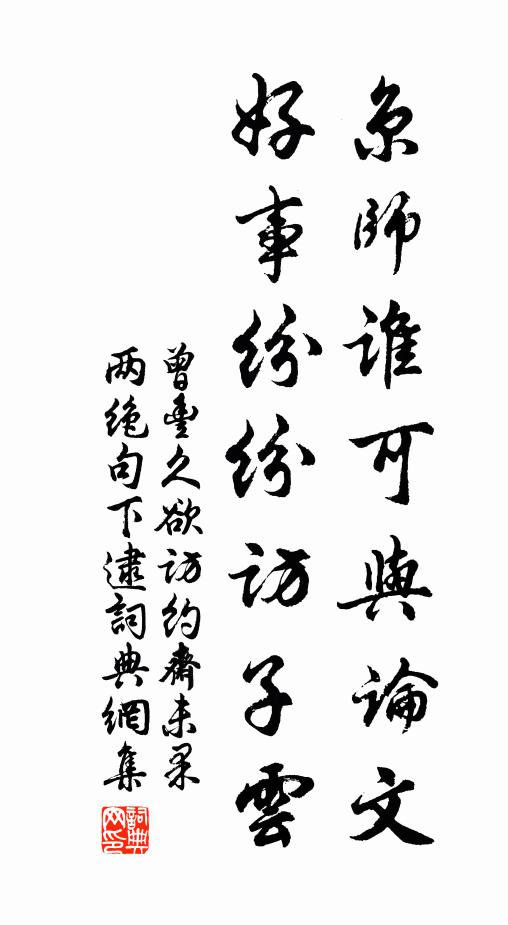 京師誰可與論文
好事紛紛訪子雲
曾豐久欲訪約齋未果
两絶句下逮詞典網集
詞典網印